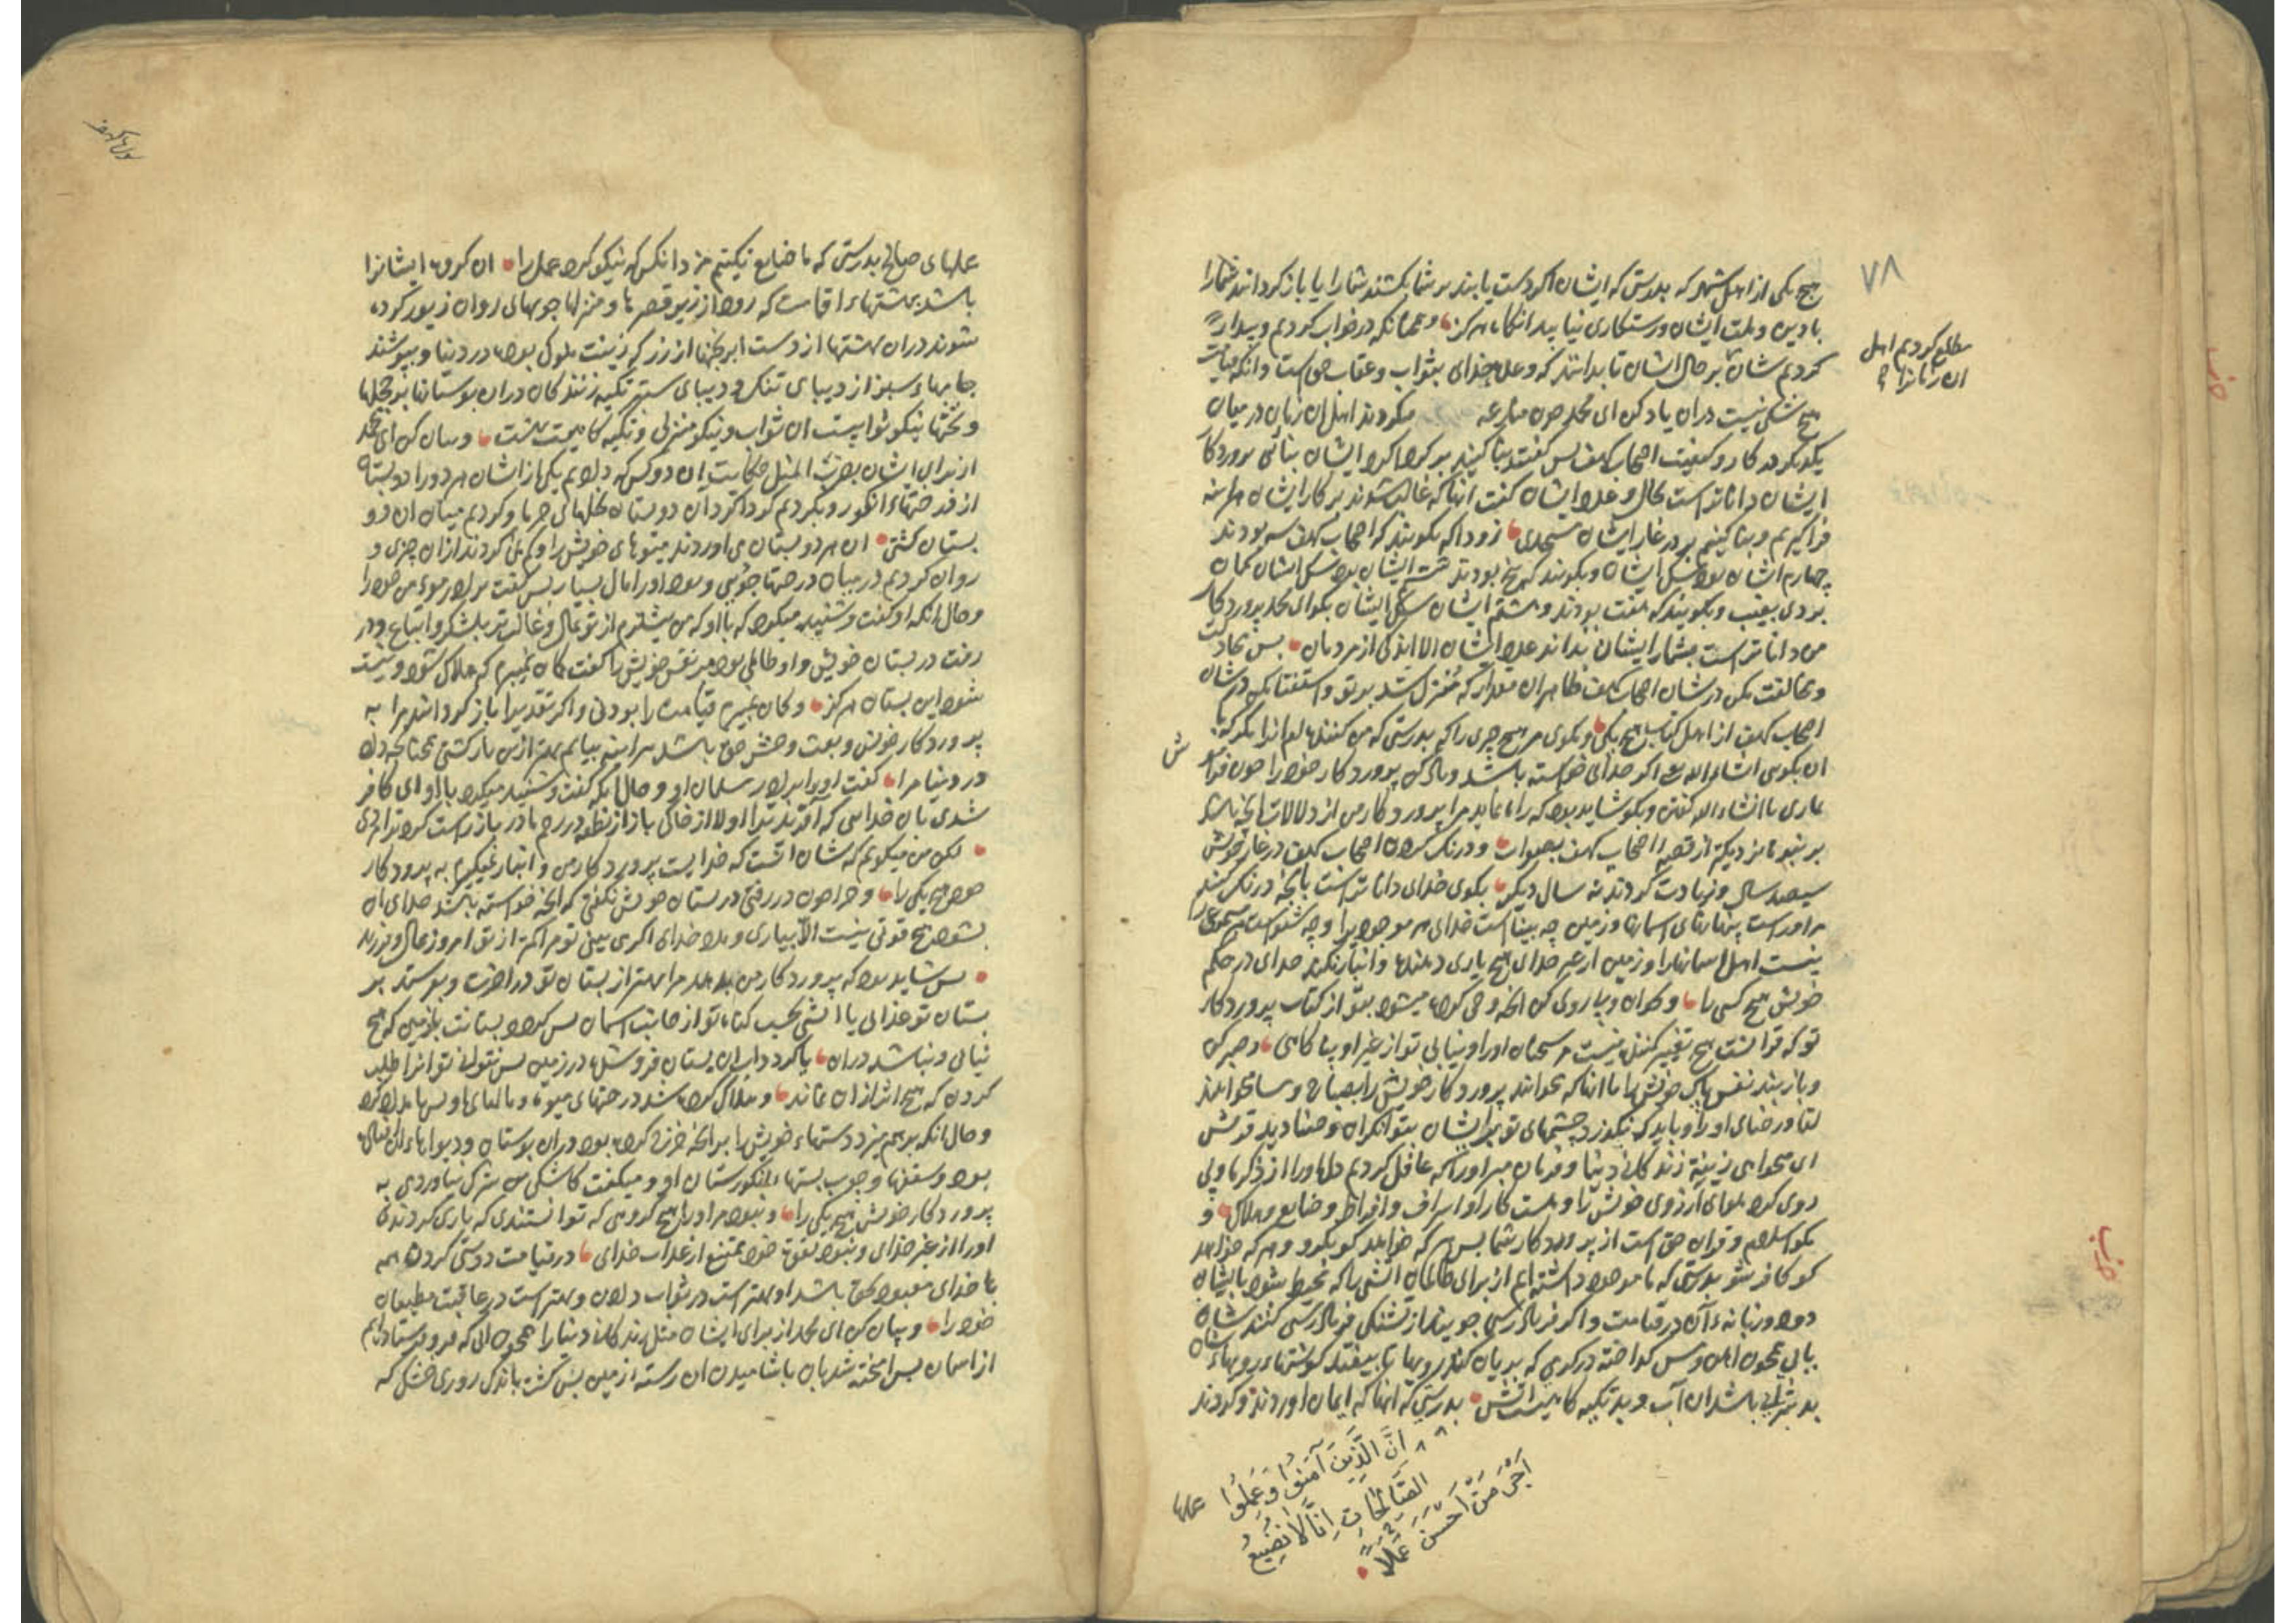 ٧٨
هیچ یکی از اهل شهر که بدرستی که ایشان اکر دست یابند بر شما بکشند شما را یا باز کردانند شما را
بادین و ملت ایشان و رستکاری نیابید انکاه هرکز و همچنانکه در خواب کردیم و بیدار
کردیم شان بر حال ایشان تا بدانند که وعده خدای بثواب و عقاب حق است و انکه قیامت
مطلع کردیم اهل
ان زمانرا
هیچ شکی نیست دران یاد کن ای محمد چون منازعه میکردند اهل ان زمان در میان
یکدیکر در کار و کیفیت اصحاب کهف بس کفتند بنا کنید بر کرداکرد ایشان بنائی بروردکار
ایشان داناتر است بحال و عدد ایشان کفتند انها که غالب شوند بر کار ایشان هراینه
فراکیریم و بنا کنیم بر در غار ایشان مسجدی زود که بکویند که اصحاب کهف سه بودند
چهارم ایشان بود سک ایشان و بکویند که پنج بودند ششم ایشان بود سک ایشان کمان
بردی بغیب و بکویند که هفت بودند و هشتم ایشان سک ایشان بکو ای محمد پروردکار
من داناتر است بشمار ایشان نداند عدد ایشان الا اندکی از مردمان بس مجادلت
و مخالفت مکن در شان اصحاب کهف ظاهر ان مقدار که منزل شد بر تو و استفتا مکن در شان
اصحاب کهف از اهل کتاب هیچ یکی و مکوی مر هیچ چیزی را که بدرستی که من کننده ام انرا مکر که
ان بکویی انشاء الله یعنی اکر خدای خواسته باشد و یاد کن پروردکار خود را چون فراموش
کاری با انشاء الله کفتن و بکو شاید بود که راه نماید مرا پروردکار من از دلالات انچه باشد
بر نبوة نزدیکتر از قصه اصحاب کهف بصواب و درنک کردن اصحاب کهف در غار خویش
سیصد سال و زیادت کردند نه سال دیکر بکوی خدای داناتر است بانچه درنک کردند
مر اوراست پنهانیهای اسمانها و زمین چه بیناست خدای هر موجود را و چه شنواست هر مسموع را
نیست اهل اسمانها و زمین از غیر خدای هیچ یاری دهنده و انباز نکیرد خدای در حکم
خویش هیچ کسی را و بخوان و پیاروی کن انچه وحی کرده میشود بتو از کتاب پروردکار
تو که قرانست هیچ تغییر کننده نیست مر سخنان اورا و نیابی تو از غیر او پناکاهی و صبر کن
و باز بند نفس پاک خویش را با انها که بخوانند پروردکار خویش را بصباح و مسا میخواهند
لقا و رضای اورا و باید که نکذرد چشمهای تو از ایشان بتوانکران و صنادید قریش
ای میخواهی زینة زندکانی دنیا و فرمان مبر اورا که غافل کردیم دل اورا از ذکر ما و پی
روی کرد هوای ارزوی خویش را و هست کار او اسراف و افراط و ضایع و هلاک و
بکو اسلام و قران حق است از پروردکار شما بس هر که خواهد کو بکرو و هر که خواهد
کو کافر شو بدرستی که ما موجود داشته ایم از برای ظالمان اتشی را که محیط شود بایشان
دود و زبانه آن در قیامت و اکر فریادرسی جویند از تشنکی فریادرسی کنند شان
بابی همچون اهن و مس کداخته در کرمی که بریان کند رویها تا بیفتد کوشتهای رویهاشان
بد شرابی باشد ان آب و بد تکیه کاهیست اتش بدرستی که انها که ایمان اوردند و کردند
انَّ الَّذِینَ آمَنُوا وَعَمِلُوا
الصَّالِحَاتِ اِنَّا لَا نُضِیعُ
اَجْرَ مَنْ اَحْسَنَ عَمَلًا
عملها
سورة الکهف
عملهای صالح بدرستی که ما ضایع نکنیم مزد انکس که نیکو کرد عمل را ان کروه ایشانرا
باشد بهشتهای اقامت که رود از زیر قصرها و منزلها جویهای روان زیور کرده
شوند دران بهشتها از دست ابرنجنها از زر که زینت ملوک بود در دنیا و بپوشند
جامهاء سبز از دیبای تنک و دیبای ستبر تکیه زنندکان دران بوستانها بر حجلها
و تختها نیکو ثوابیست ان ثواب و نیکو منزلی و تکیه کاهیست بهشت و بیان کن ای محمد
از برای ایشان بضرب المثل حکایت ان دو کس که دادیم یکی از ایشان هر دو را دو بستان
از درختهاء انکور و بکردیم کرداکرد ان دو بستان نخلهای خرما و کردیم میان ان دو
بستان کشتی ان هر دو بستان می اوردند میوهای خویش را و کم نمی کردند ازان چیزی و
روان کردیم در میان درختها جویی و بود اورا مال بسیار بس کفت برادر مومن خود را
و حال انکه او کفت و شنید میکرد که بااو که من بیشترم از تو بمال و غالب تر بلشکر و اتباع و در
رفت در بستان خویش و او ظالمی بود مر نفس خویش را کفت کمان نمیبرم که هلاک شود و نیست
شود این بستان هرکز و کمان نمیبرم قیامت را بودنی و اکر بتقدیر باز کردانند مرا به
پروردکار خویش و بعث و حشر حق باشد هراینه بیابم بهتر ازین بازکشتی همچنانکه داد
در دنیا مرا کفت اورا برادر مسلمان او و حال انکه کفت و شنید میکرد بااو ای کافر
شدی بان خدایی که افرید ترا اولا از خاک باز از نطفه در رحم مادر باز راست کرد ترا مردی
لکن من میکویم که شان انست که خدایست پروردکار من و انباز نمیکیرم به پروردکار
خود هیچ یکی را و چرا چون در رفتی در بستان خویش نکفتی که انچه خواسته باشد خدای ان
بشود هیچ قوتی نیست الا بیاری و مدد خدای اکر می بینی تو مرا کمتر از تو امروز بمال و فرزند
بس شاید بود که پروردکار من بدهد مرا بهتر از بستان تو در اخرت و بفرستد بر
بستان تو عذابی یا اتشی بحسب کناه تو از جانب اسمان بس کردد بستانت زمین که هیچ
نباتی و نباشد دران یا کردد اب ان بستان فروشده در زمین بس نتوانی تو انرا طلب
کردن که هیچ اثر ازان نماند و هلاک کرده شد درختهای میوه و مالهای او
و حال انکه برهم میزد دستهاء خویش را بر انچه خرج کرده بود دران بوستان و دیوارهاء ان
بود و سقفها و چوب بستهاء انکورستان او و میکفت کاشکی من شرک نیاوردمی به
پروردکار خویش هیچ یکی را و نبود مر اورا هیچ کروهی که توانستندی که یاری کردندی
اورا از غیر خدای و نبود بقوت خود ممتنع از عذاب خدای در قیامت دوستی کردن همه
با خدای معبود بحق باشد او بهتر است در ثواب دادن و بهتر است در عاقبت مطیعان
خود را و بیان کن ای محمد از برای ایشان مثل زندکانی دنیا را همچون ابی که فرو فرستادیم
از اسمان بس امیخته شد بان باشامیدن ان رسته از زمین بس کشت باندک روزی خشک که